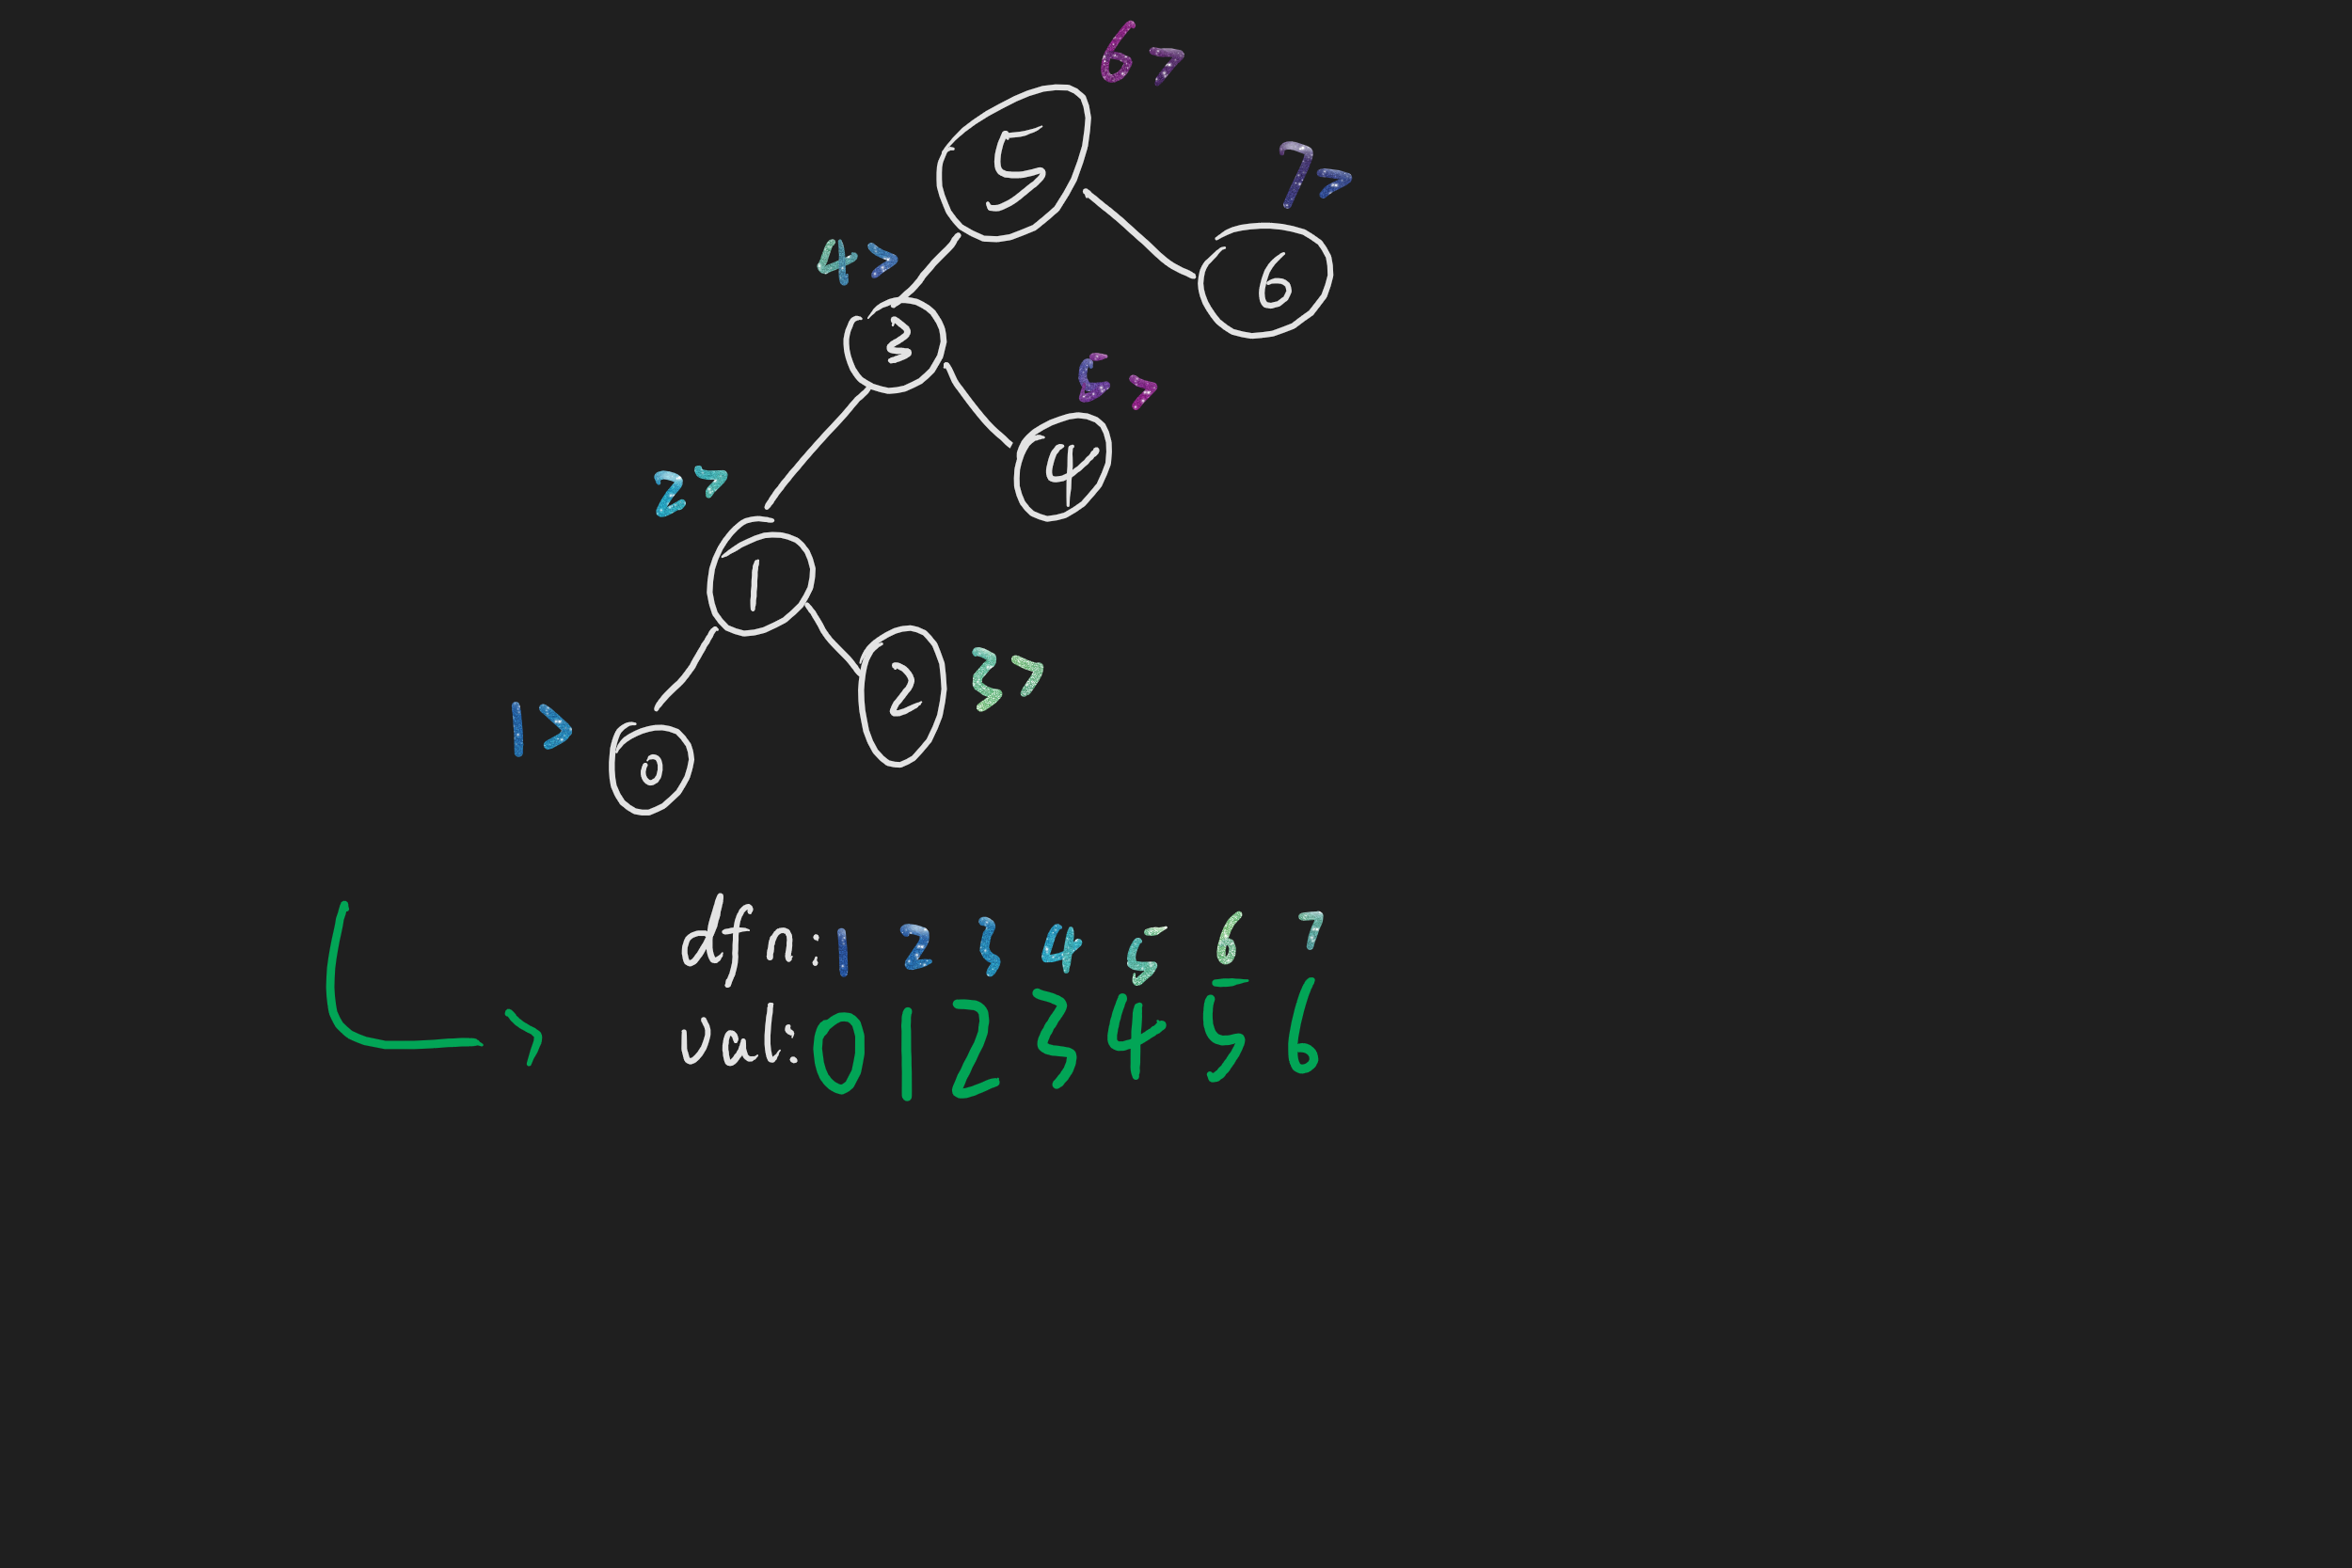 6>
5
7>
4>
6
3
5>
4
2>
1
2
3>
1>
0
dfn: 1 2 3 4 5 6 7
val: 0 1 2 3 4 5 6